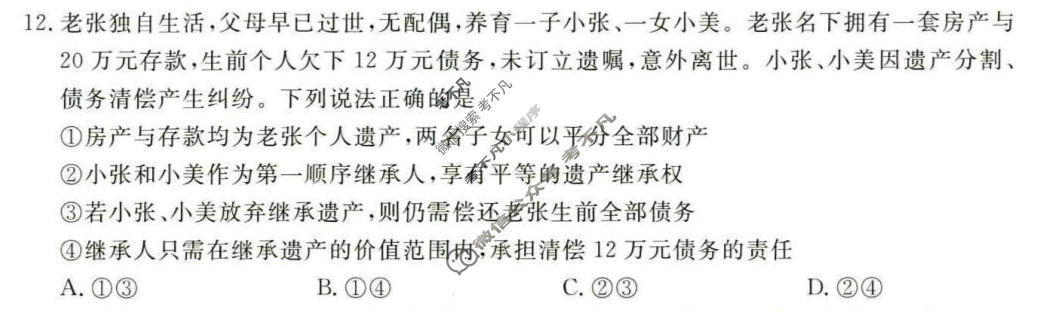 12. 老张独自生活,父母早已过世,无配偶,养育一子小张、一女小美。老张名下拥有一套房产与
20万元存款,生前个人欠下12万元债务,未订立遗嘱,意外离世。小张、小美因遗产分割、
债务清偿产生纠纷。下列说法正确的是
①房产与存款均为老张个人遗产,两名子女可以平分全部财产
②小张和小美作为第一顺序继承人,享有平等的遗产继承权
③若小张、小美放弃继承遗产,则仍需偿还老张生前全部债务
④继承人只需在继承遗产的价值范围内,承担清偿12万元债务的责任
A. ①③ B. ①④ C. ②③ D. ②④
微信搜索 考不凡
考不凡
考不凡小程序
微信公众号:考不凡